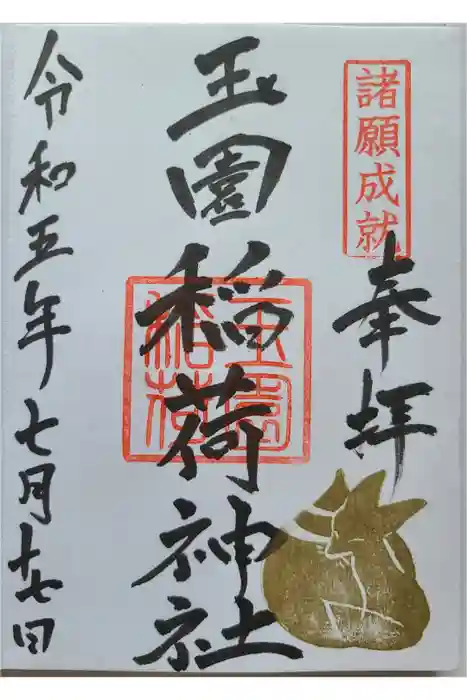 諸願成就
奉拝
玉園稲荷神社
玉園
稲荷
令和五年七月十七日